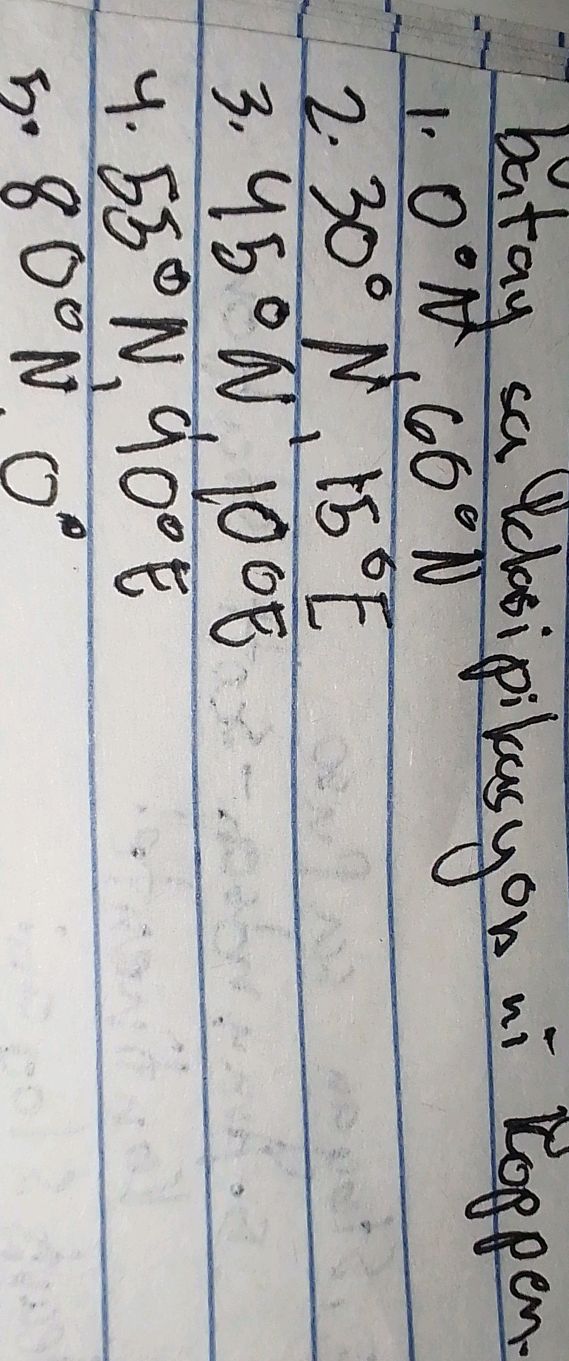 batay sa klasipikasyon ni Koppen.
1. 0°N, 60°N
2. 30°N, 15°E
3. 45°N, 10°E
4. 55°N, 90°E
5. 80°N, 0°